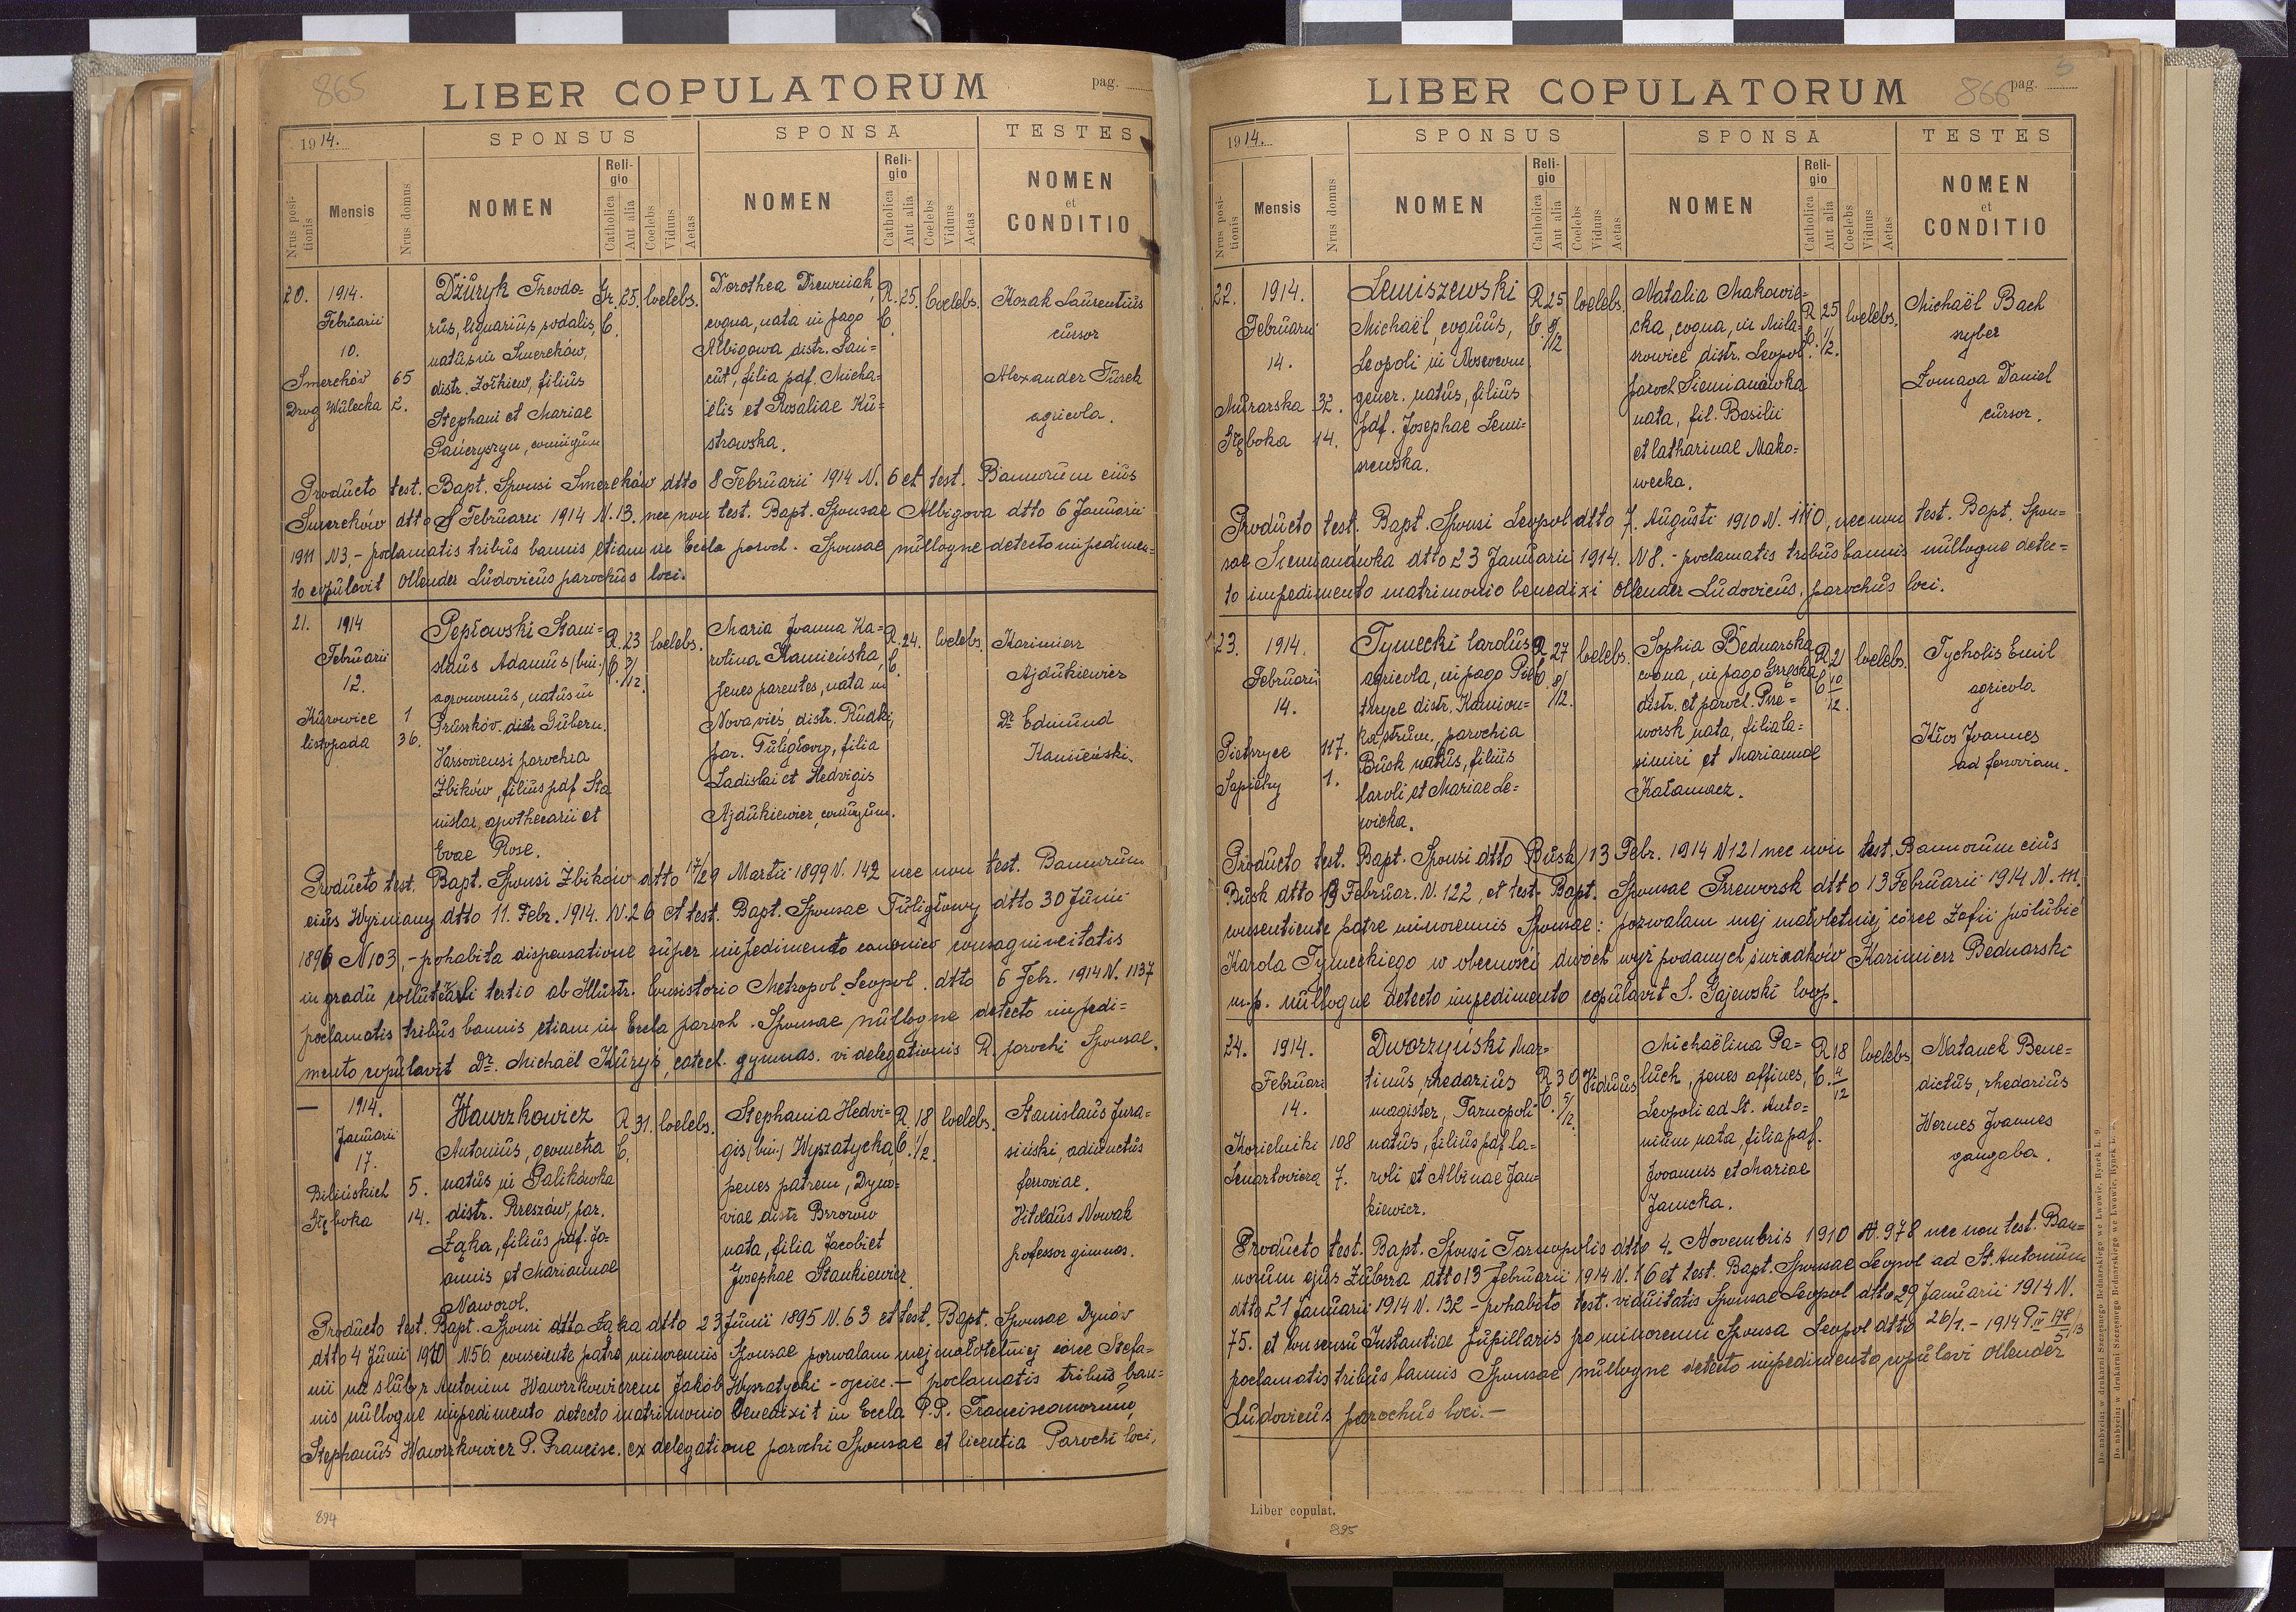 865
LIBER COPULATORUM
pag.
1914.
SPONSUS
SPONSA
TESTES
Nrus positionis
Mensis
Nrus domus
NOMEN
Religio
Catholica
Aut alia
Coelebs
Viduus
Aetas
NOMEN
Religio
Catholica
Aut alia
Coelebs
Viduus
Aetas
NOMEN
et
CONDITIO
20.
1914.
Februarii
10.
Smereków 65
Drog Wulecka 2.
Dżuryk Theodo-
rus, lignarius sodalis,
natus in Smereków,
distr. Żółkiew, filius
Stephani et Mariae
coniugum
Gr.
C.
25.
Coelebs.
Dorothea Drewniak,
coqua, nata in pago
Albigowa distr. Łań=
cut, filia pdf. Micha=
ëlis et Rosaliae Ku=
strowska.
R.
C.
25.
Coelebs.
Kozak Laurentius
cursor
Alexander Turek
agricola.
Producto test. Bapt. Sponsi Smereków dtto 8 Februarii 1914 N. 6 et test. Bannorum eius
Smereków dtto 8 Februarii 1914 N. 13. nec non test. Bapt. Sponsae Albigova dtto 6 Januarii
1911 N3, - proclamatis tribus bannis etiam in Eccla paroch. Sponsae nulloque detecto impedimen=
to copulavit Ollender Ludovicus parochus loci.
21.
1914
Februarii
12.
Kurowice 1
listopada 36.
Pepłowski Stani=
slaus Adamus (bin.)
agronomus, natus in
Pruszków distr. Gubern.
Varsoviensi parochia
Żbików, filius pdf Sta
nislai, apothecarii et
Evae Rose.
R.
C.
23
3/12.
Coelebs.
Maria Joanna Ka=
rolina Kamieńska,
penes parentes, nata in
Novavieś, distr. Rudki,
par. Tuligłowy, filia
Ladislai et Hedvigis
Ajdukiewicz, coniugum.
R.
C.
24.
Coelebs.
Kazimierz
Ajdukiewicz
Dr. Edmund
Kamieński.
Producto test. Bapt. Sponsi Żbików dtto 17/29 Martii 1899 N. 142 nec non test. Bannorum
eius Wyżniany dtto 11. Febr. 1914. N. 26 et test. Bapt. Sponsae Tuligłowy dtto 30 Junii
1896 N 103, - prohabita dispensatione super impedimento canonico consaguineitatis
in gradu collaterali tertio ab Illustr. Consistorio Metropol. Leopol. dtto 6 Febr. 1914 N. 1137
proclamatis tribus bannis etiam in Eccla paroch. Sponsae nulloque detecto impedi=
mento copulavit Dr. Michaël Kuryś, catech. gymnas. vi delegationis R. parochi Sponsae.
—
1914.
Januarii
17.
Bilińskich 5.
Głęboka 14.
Wawrzkowicz
Antonius, geometra
natus in Palikówka
distr. Rzeszów, par.
Łąka, filius pdf. Jo=
annis et Mariannae
Naworol.
R.
C.
31.
Coelebs.
Stephania Hedvi=
gis (bin.) Wyszatycka,
penes patrem, Dyno=
viae distr. Brzozów
nata, filia Jacobi et
Josephae Stankiewicz
R.
C.
18
1/2.
Coelebs.
Stanislaus Jura=
siński, adiunctus
ferroviae.
Vitoldus Nowak
professor gimnas.
Producto test. Bapt. Sponsi dtto Łąka dtto 23 Junii 1895 N. 63 et test. Bapt. Sponsae Dynów
dtto 4 Junii 1910 N56. consciente patre minorennis Sponsae pozwalam mej małoletniej córce Stefa=
nii na ślub z Antonim Wawrzkowiczem Jakób Wyszatycki - ojciec. - proclamatis tribus ban=
nis nulloque impedimento detecto matrimonio benedixit in Eccla P.P. Franciscanorum,
Stephanus Wawrzkowicz P. Francisc. ex delegatione parochi Sponsae et licentia Parochi loci,
894
LIBER COPULATORUM
866
pag.
5
1914.
SPONSUS
SPONSA
TESTES
Nrus positionis
Mensis
Nrus domus
NOMEN
Religio
Catholica
Aut alia
Coelebs
Viduus
Aetas
NOMEN
Religio
Catholica
Aut alia
Coelebs
Viduus
Aetas
NOMEN
et
CONDITIO
22.
1914.
Februarii
14.
Murarska 32.
Głęboka 14.
Lemiszewski
Michaël, coquus,
Leopoli in Nosocom.
gener. natus, filius
pdf. Josephae Lemi=
szewska.
R.
C.
25
Coelebs.
Natalia Makowie=
cka, coqua, in Mila=
szowice distr. Leopol
paroch Siemianówka
nata, fil. Basilii
et Catharinae Mako=
wecka.
R
C.
25
1/2.
Coelebs.
Michaël Bach
Łomaga Daniel
cursor.
Producto test. Bapt. Sponsi Leopol dtto 7. Augusti 1910 N. 1110, nec non test. Bapt. Spon=
sae Siemianówka dtto 23 Januarii 1914. N 8. - proclamatis tribus bannis nulloque detec=
to impedimento matrimonio benedixi Ollender Ludovicus, parochus loci.
23.
1914.
Februarii
14.
Pietrzyce 117.
Sapiehy 1.
Tymecki Carolus
agricola, in pago Pie
trzyce distr. Kamion=
ka strum., parochia
Busk natus, filius
Caroli et Mariae Le=
wicka.
R
C.
27
Coelebs.
Sophia Bednarska
coqua, in pago
distr. et paroch. Prze=
worsk nata, filia Ca=
simiri et Mariannae
Kałamarz.
R
C
21
10/12.
Coelebs.
Tycholis Emil
agricola
Kłos Joannes
ad ferroviam.
Producto test. Bapt. Sponsi dtto Busk 13 Febr. 1914 N 121 nec non test. Bannorum eius
Busk dtto 13 Februar. N. 122, et test. Bapt. Sponsae Przeworsk dtto 13 Februarii 1914 N. 111.
consentiente patre minorennis Sponsae: pozwalam mej małoletniej córce Zofii poślubić
Karola Tymeckiego w obecności dwóch wyż podanych świadków Kazimierz Bednarski
m.p. nulloque detecto impedimento copulavit S. Gajewski Coop.
24.
1914.
Februarii
14.
Kozielniki 108
Lenartowicza 7.
Dworzyński Mar=
tinus, rhedarius
magister, Tarnopoli
natus, filius pdf Ca=
roli et Albinae Jan=
kiewicz.
R
C.
30
5/12.
Viduus
Michaëlina Pa=
luch, penes affines,
Leopoli ad St. Anto=
nium nata, filia pdf.
Joannis et Mariae
Janicka.
R
C.
18
4/12
Coelebs
Natanek Bene=
dictus, rhedarius
Wernes Joannes
gangaba.
Producto test. Bapt. Sponsi Tarnopolis dtto 4. Novembris 1910 N. 978 nec non test. Ban=
norum ejus Zubrza dtto 13 februarii 1914 N. 16 et test. Bapt. Sponsae Leopol ad St. Antonium
dtto 21 Januarii 1914 N. 132 - prohabito test. viduitatis Sponsae Leopol dtto 29 Januarii 1914 N.
75. et consensu Instantiae pupillaris pro minorenni Sponsa Leopol dtto 26/1. - 1914
proclamatis tribus bannis Sponsae nulloque detecto impedimento copulavi Ollender
Ludovicus parochus loci. -
Liber copulat.
895
Do nabycia: w drukarni Szczęsnego Bednarskiego we Lwowie, Rynek L. 9.